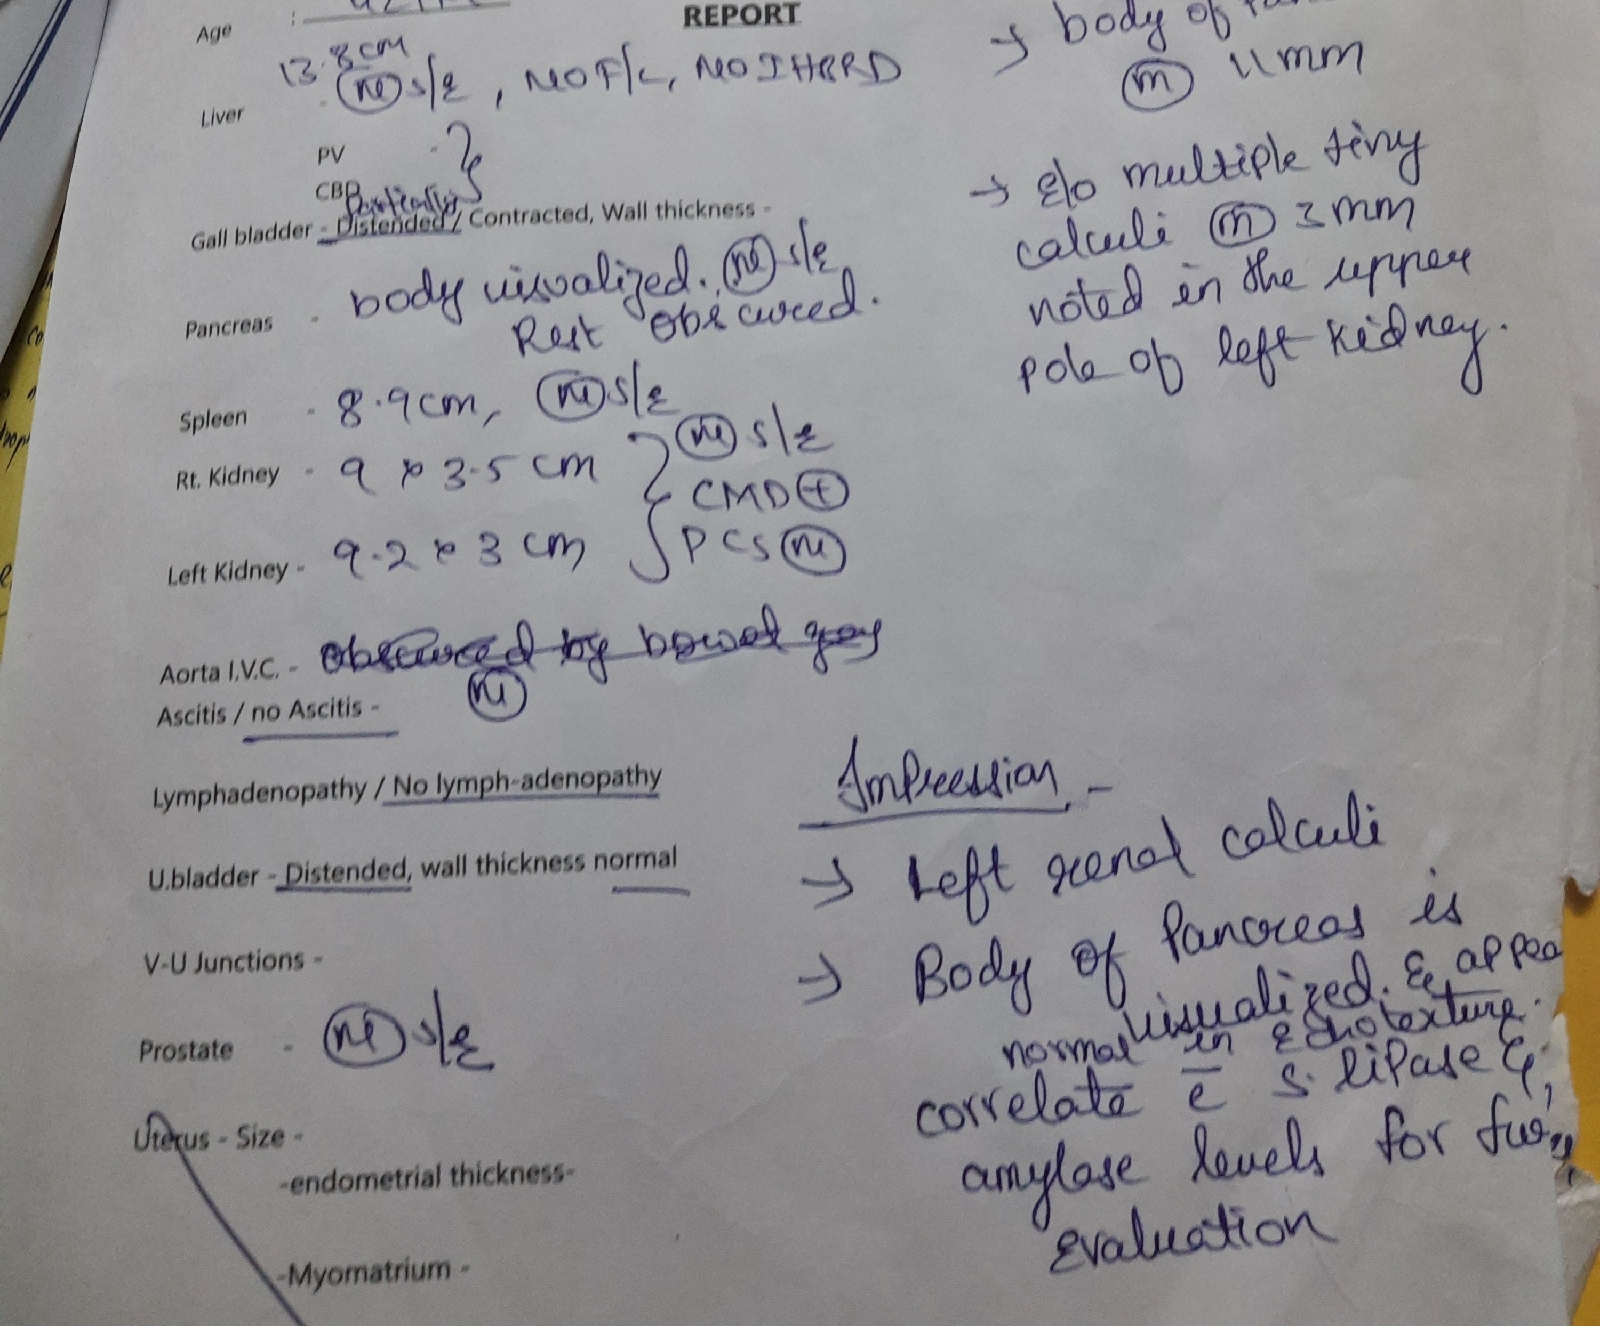 Age :
REPORT
13.8cm
Liver (N) s/e, NO F/L, NO IHBRD
PV -
CBD
Partially
Gall bladder - Distended / Contracted, Wall thickness -
Pancreas - body visualized. (N) s/e
Rest obscured.
Spleen - 8.9cm, (N) s/e
Rt. Kidney - 9 x 3.5 cm (N) s/e
CMD (+)
Left Kidney - 9.2 x 3 cm PCS (N)
Aorta I.V.C. - obscured by bowel gas
(N)
Ascitis / no Ascitis -
Lymphadenopathy / No lymph-adenopathy
U.bladder - Distended, wall thickness normal
V-U Junctions -
Prostate - (N) s/e
Uterus - Size -
-endometrial thickness-
-Myomatrium -
→ body of
(m) 11mm
→ E/o multiple tiny
calculi (m) 3mm
noted in the upper
pole of left kidney.
Impression -
→ Left renal calculi
→ Body of Pancreas is
visualized. & appea
normal in echotexture.
correlate c̄ S. lipase &
amylase levels for
Evaluation